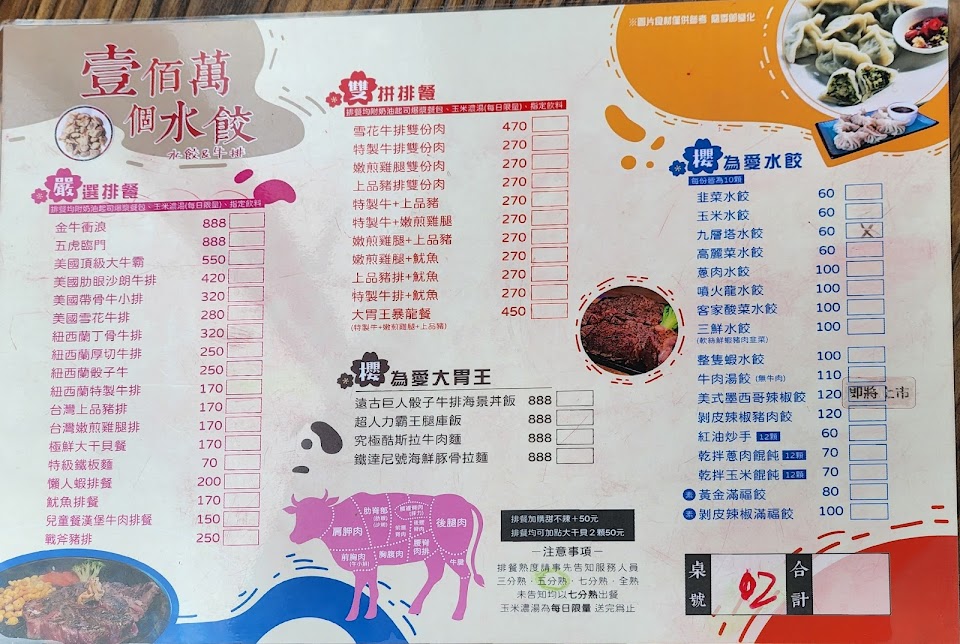 壹佰萬
個水餃
水餃&牛排
※圖片食材僅供參考 隨季節變化
嚴選排餐
排餐均附奶油起司爆漿餐包、玉米濃湯(每日限量)、指定飲料
金牛衝浪 888
五虎臨門 888
美國頂級大牛霸 550
美國肋眼沙朗牛排 420
美國帶骨牛小排 320
美國雪花牛排 280
紐西蘭丁骨牛排 320
紐西蘭厚切牛排 250
紐西蘭骰子牛 250
紐西蘭特製牛排 170
台灣上品豬排 170
台灣嫩煎雞腿排 170
極鮮大干貝餐 170
特級鐵板麵 70
懶人蝦排餐 200
魷魚排餐 170
兒童餐漢堡牛肉排餐 150
戰斧豬排 250
雙拼排餐
排餐均附奶油起司爆漿餐包、玉米濃湯(每日限量)、指定飲料
雪花牛排雙份肉 470
特製牛排雙份肉 270
嫩煎雞腿雙份肉 270
上品豬排雙份肉 270
特製牛+上品豬 270
特製牛+嫩煎雞腿 270
嫩煎雞腿+上品豬 270
嫩煎雞腿+魷魚 270
上品豬排+魷魚 270
特製牛排+魷魚 270
大胃王暴龍餐 450
(特製牛+嫩煎雞腿+上品豬)
櫻為愛大胃王
遠古巨人骰子牛排海景丼飯 888
超人力霸王腿庫飯 888
究極酷斯拉牛肉麵 888
鐵達尼號海鮮豚骨拉麵 888
肩胛肉
肋脊部
後腿肉
前胸肉
(牛小排)
胸腹肉
腰脊肉排
牛腱
排餐加購甜不辣+50元
排餐均可加點大干貝2顆50元
—注意事項—
排餐熟度請事先告知服務人員
三分熟、五分熟、七分熟、全熟
未告知均以七分熟出餐
玉米濃湯為每日限量 送完為止
櫻為愛水餃
每份皆為10顆
韭菜水餃 60
玉米水餃 60
九層塔水餃 60 X
高麗菜水餃 60
蔥肉水餃 100
噴火龍水餃 100
客家酸菜水餃 100
三鮮水餃 100
(軟絲鮮蝦豬肉韭菜)
整隻蝦水餃 100
牛肉湯餃 (無牛肉) 110
美式墨西哥辣椒餃 120 即將上市
剝皮辣椒豬肉餃 120
紅油炒手 12顆 60
乾拌蔥肉餛飩 12顆 70
乾拌玉米餛飩 12顆 70
素 黃金滿福餃 80
素 剝皮辣椒滿福餃 100
桌號 02 合計